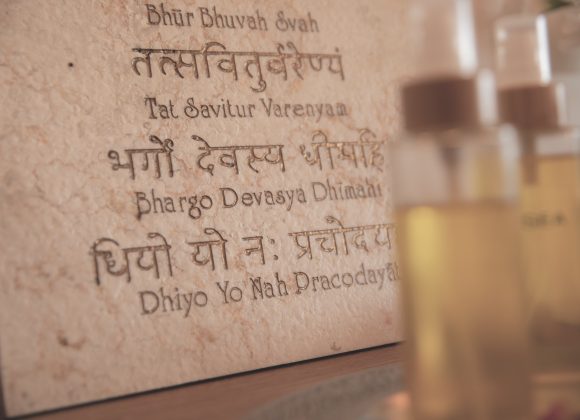 Bhūr Bhuvah Svah
तत्सवितुर्वरेण्यं
Tat Savitur Varenyam
भर्गो देवस्य धीमहि
Bhargo Devasya Dhimahi
धियो यो नः
Dhiyo Yo Nah Pracodayāt